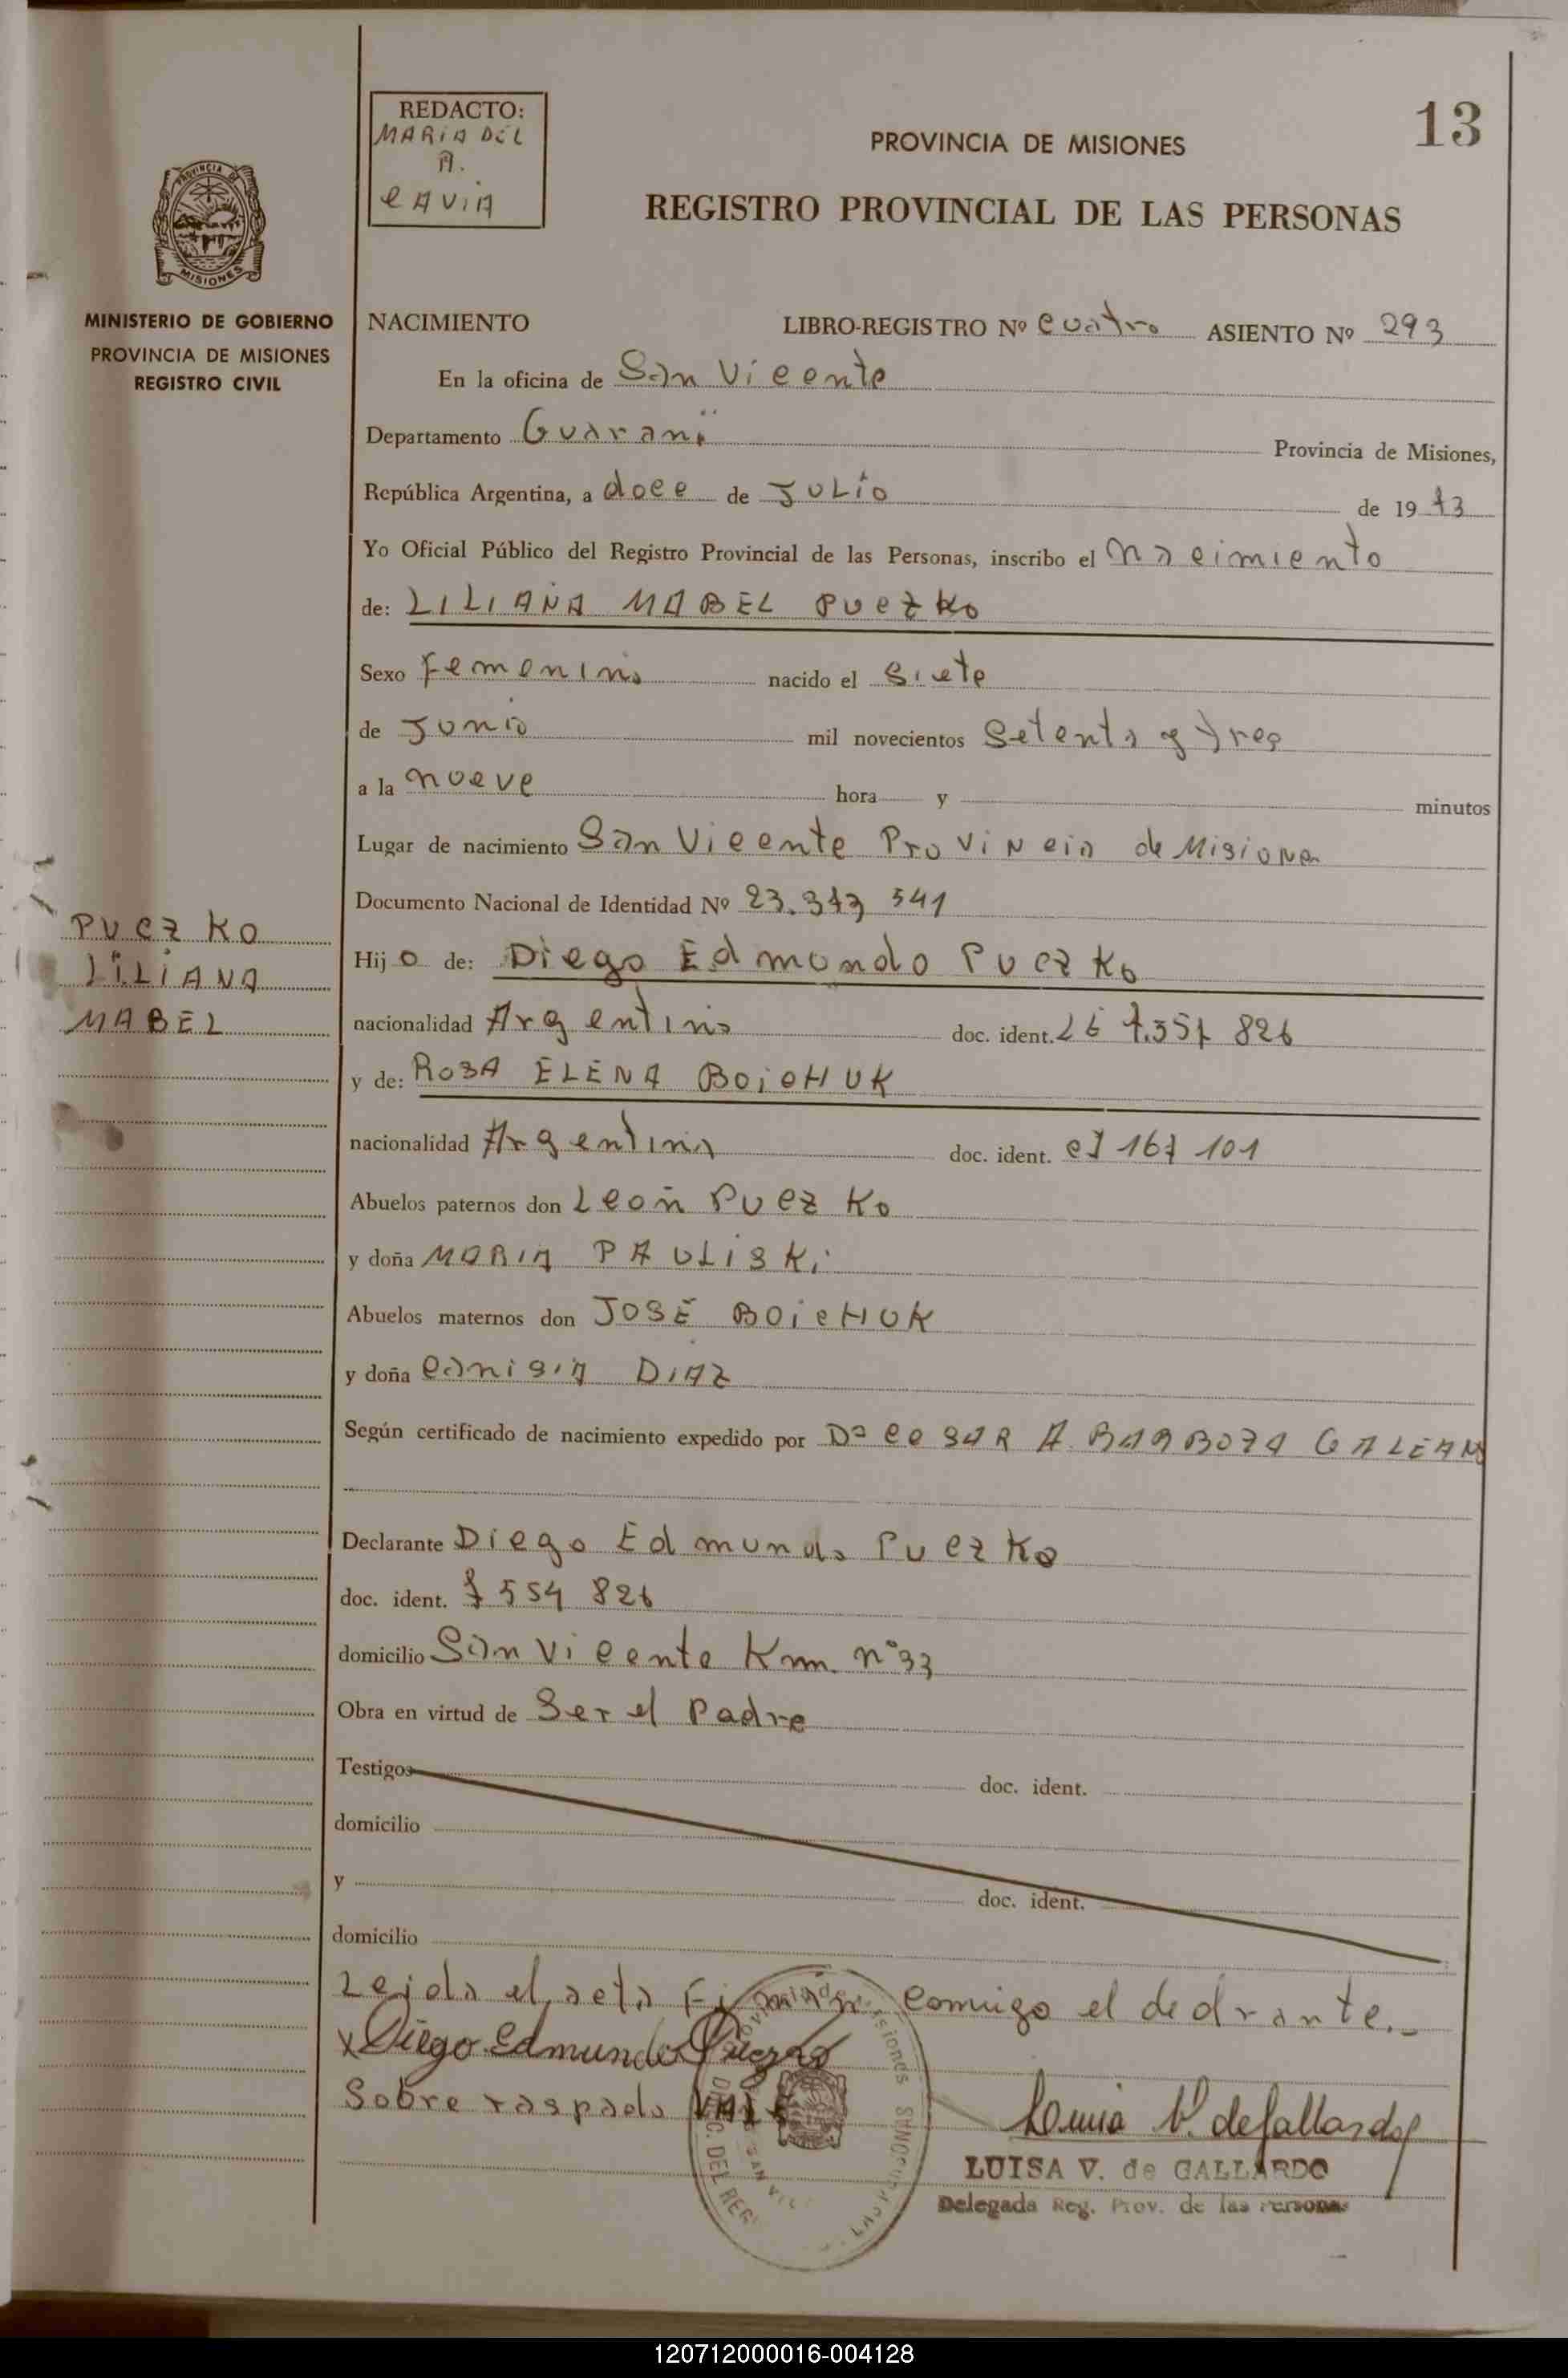 13
REDACTO:
MARIA DEL
A.
CAVIA
PROVINCIA DE MISIONES
REGISTRO PROVINCIAL DE LAS PERSONAS
PROVINCIA DE
MISIONES
MINISTERIO DE GOBIERNO
PROVINCIA DE MISIONES
REGISTRO CIVIL
NACIMIENTO LIBRO-REGISTRO Nº cuatro ASIENTO Nº 293
En la oficina de San Vicente
Departamento Guarani Provincia de Misiones,
República Argentina, a doce de Julio de 1973
Yo Oficial Público del Registro Provincial de las Personas, inscribo el nacimiento
de: LILIANA MABEL PUCZKO
Sexo femenino nacido el Siete
de Junio mil novecientos Setenta y tres
a la nueve hora y minutos
Lugar de nacimiento San Vicente Provincia de Misiones
Documento Nacional de Identidad Nº 23.373 541
PUCZKO
LILIANA
MABEL
Hijo de: Diego Edmundo Puczko
nacionalidad Argentino doc. ident. LE 7.557 826
y de: ROSA ELENA BOICHUK
nacionalidad Argentina doc. ident. CI 167 101
Abuelos paternos don León Puczko
y doña MARIA PAULISKi
Abuelos maternos don JOSÉ BOICHUK
y doña Canisia DIAZ
Según certificado de nacimiento expedido por Dº CESAR A. BARBOZA GALEANO
Declarante Diego Edmundo Puczko
doc. ident. 7 554 826
domicilio San Vicente Km. nº 33
Obra en virtud de Ser el Padre
Testigos doc. ident.
domicilio
y doc. ident.
domicilio
Leida el acta Firman conmigo el declarante.-
x Diego Edmundo Puczko
Sobre raspado VALE
Luisa V. de Gallardo
LUISA V. de GALLARDO
Delegada Reg. Prov. de las Personas
120712000016-004128